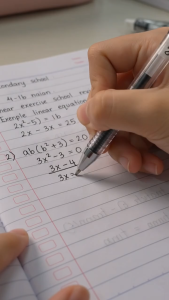 ondary school
4-1b
near exercise school
Exemple linear equation
2x²-5) = 1b
2x - 3x = 25
2) ab(b²+3) = 20
3x²-3 = 0
3x-4
3x=